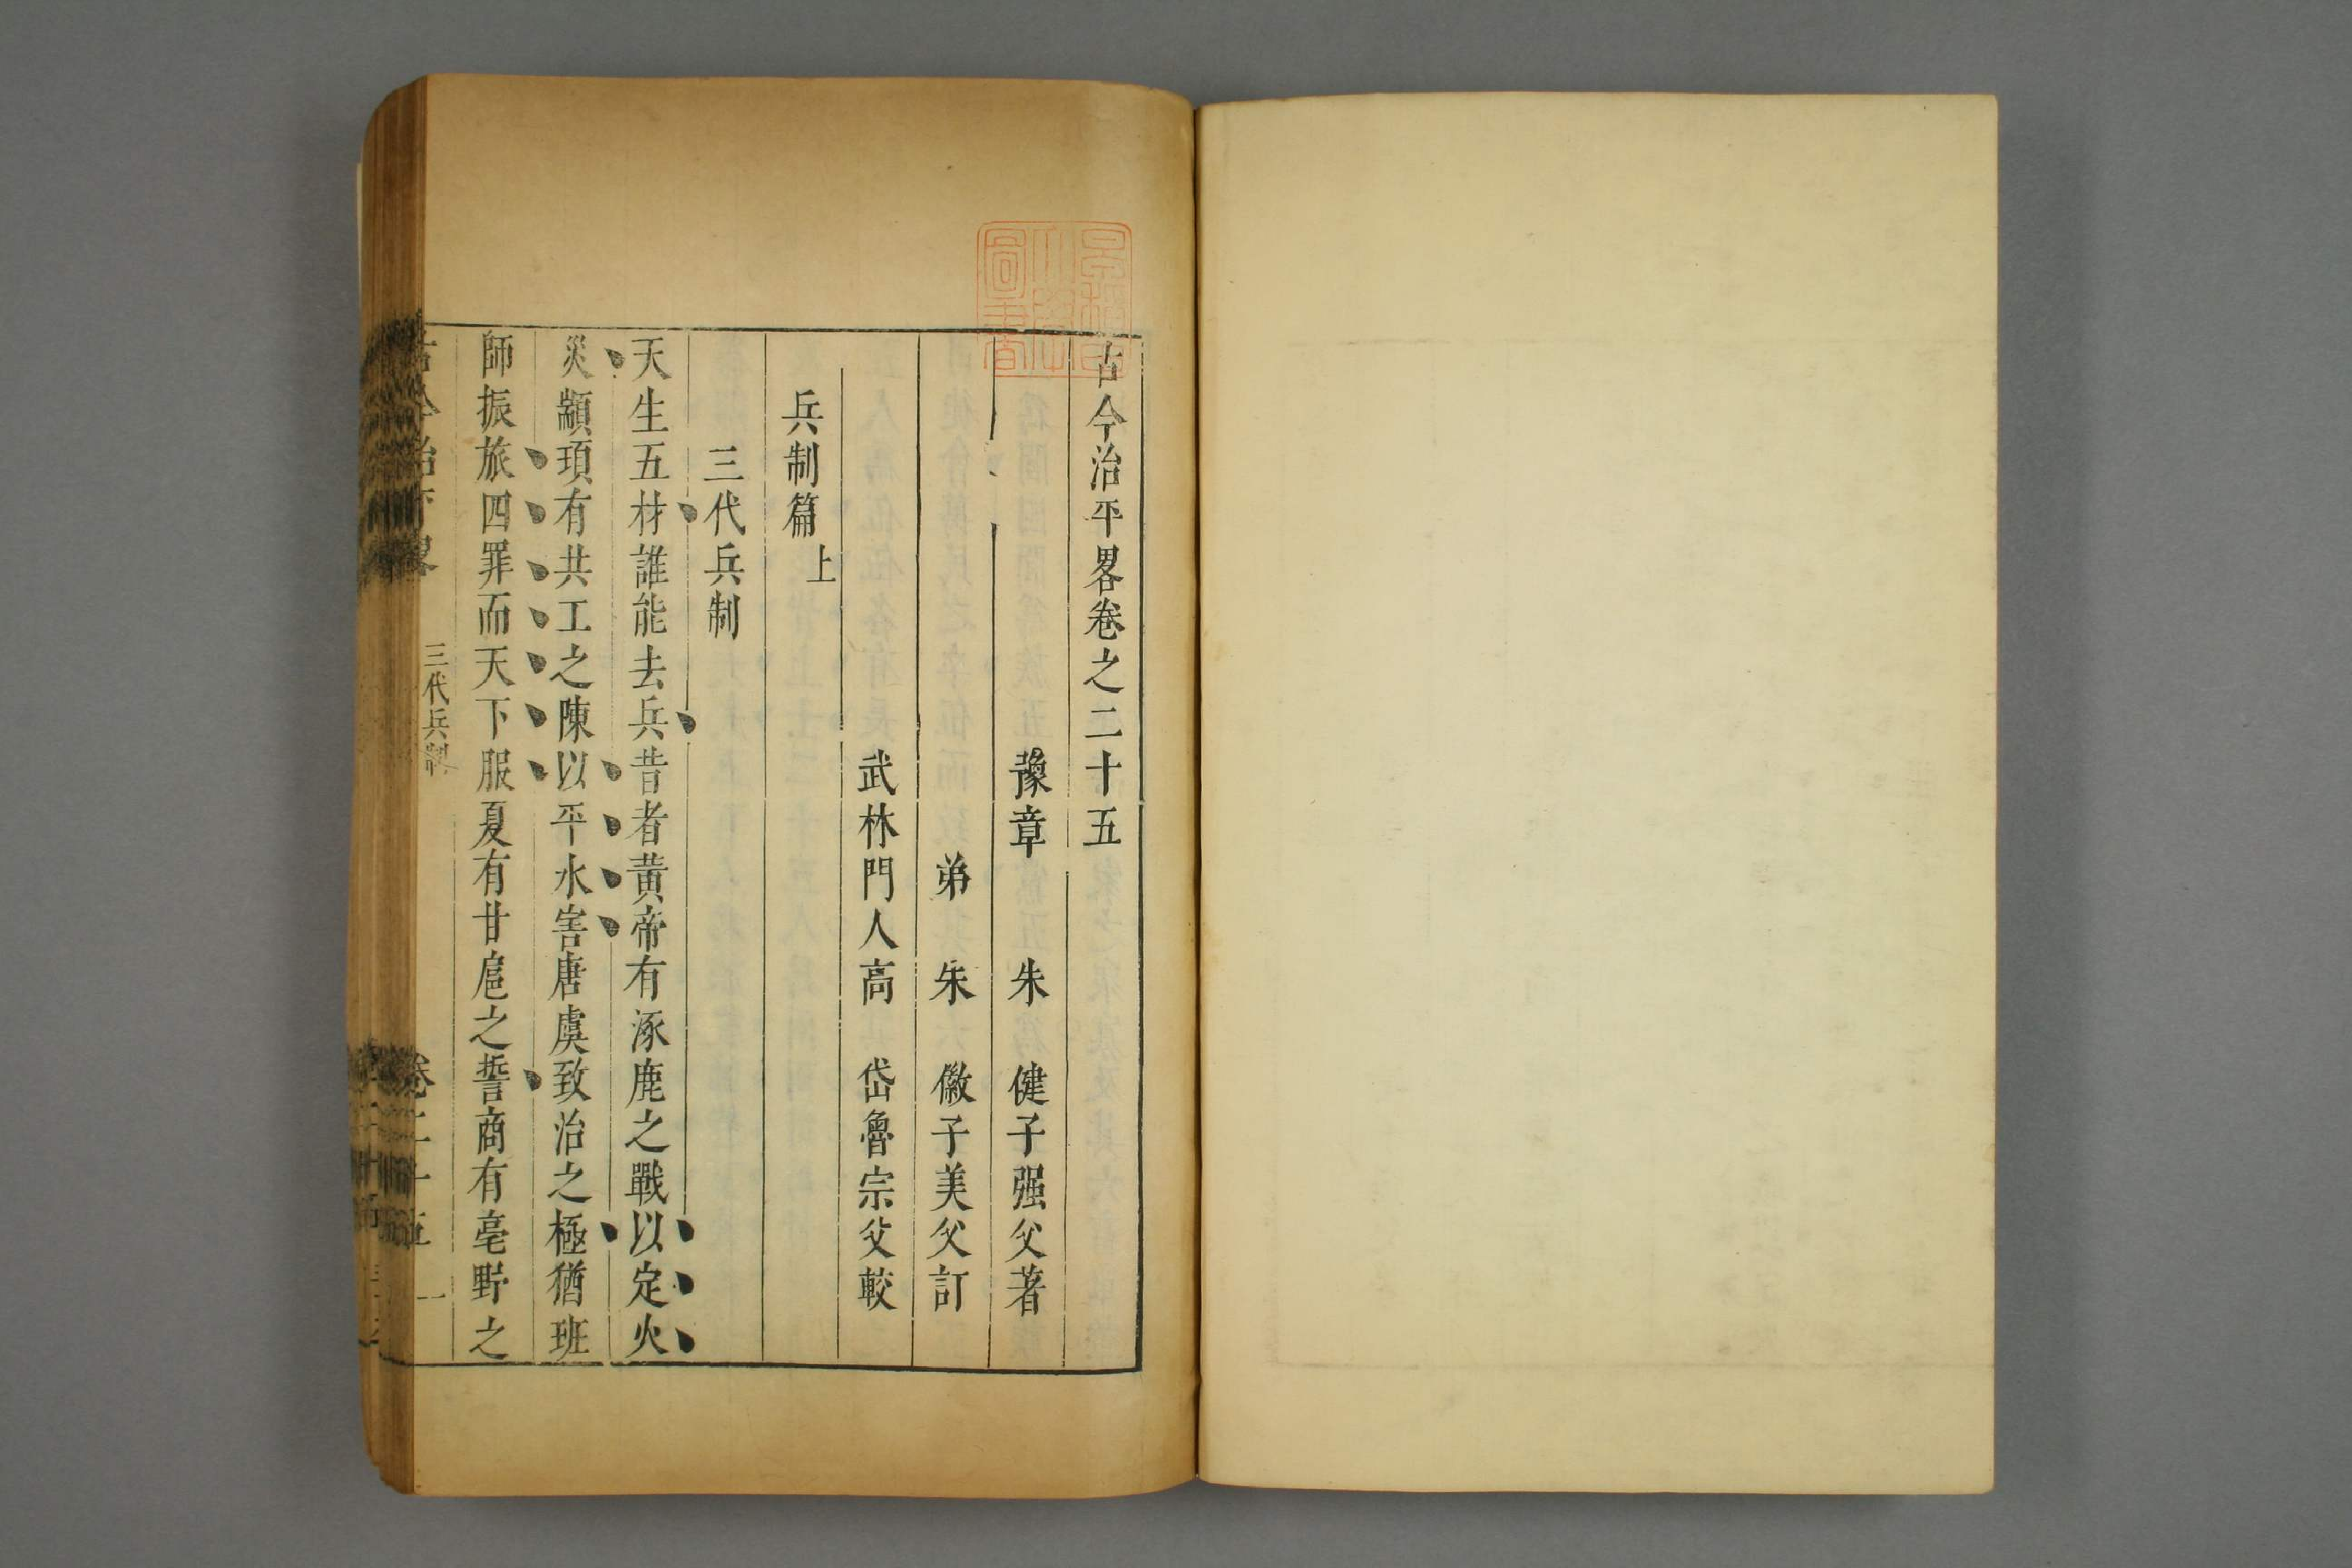 古今治平畧卷之二十五
豫章　朱　健子强父著
弟　朱　徽子美父訂
武林門人高　岱魯宗父較
兵制篇上
三代兵制
天生五材誰能去兵昔者黃帝有涿鹿之戰以定火
災顓頊有共工之陳以平水害唐虞致治之極猶班
師振旅四罪而天下服夏有甘扈之誓商有亳野之
古今治平畧　三代兵制　卷二十五　一